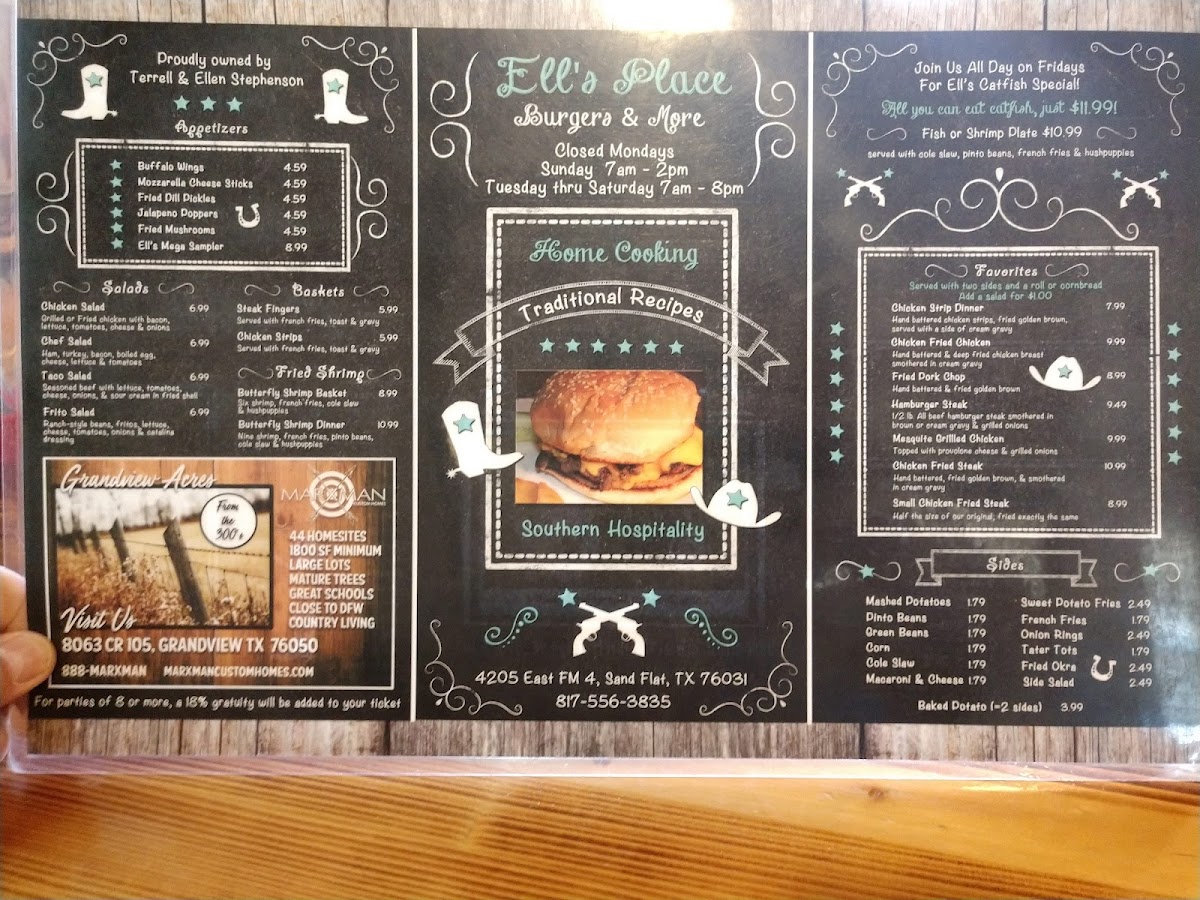 Proudly owned by
Terrell & Ellen Stephenson
Appetizers
Buffalo Wings 4.59
Mozzarella Cheese Sticks 4.59
Fried Dill Pickles 4.59
Jalapeno Poppers 4.59
Fried Mushrooms 4.59
Ell's Mega Sampler 8.99
Salads
Chicken Salad 6.99
Grilled or Fried chicken with bacon,
lettuce, tomatoes, cheese & onions
Chef Salad 6.99
Ham, turkey, bacon, boiled egg,
cheese, lettuce & tomatoes
Taco Salad 6.99
Seasoned beef with lettuce, tomatoes,
cheese, onions, & sour cream in fried shell
Frito Salad 6.99
Ranch-style beans, fritos, lettuce,
cheese, tomatoes, onions & catalina
dressing
Baskets
Steak Fingers 5.99
Served with french fries, toast & gravy
Chicken Strips 5.99
Served with french fries, toast & gravy
Fried Shrimp
Butterfly Shrimp Basket 8.99
Six shrimp, french fries, cole slaw
& hushpuppies
Butterfly Shrimp Dinner 10.99
Nine shrimp, french fries, pinto beans,
cole slaw & hushpuppies
Grandview Acres
From
the
300's
MARXMAN
CUSTOM HOMES
44 HOMESITES
1800 SF MINIMUM
LARGE LOTS
MATURE TREES
GREAT SCHOOLS
CLOSE TO DFW
COUNTRY LIVING
Visit Us
8063 CR 105, GRANDVIEW TX 76050
888-MARXMAN MARXMANCUSTOMHOMES.COM
For parties of 8 or more, a 18% gratuity will be added to your ticket
Ell's Place
Burgers & More
Closed Mondays
Sunday 7am - 2pm
Tuesday thru Saturday 7am - 8pm
Home Cooking
Traditional Recipes
Southern Hospitality
4205 East FM 4, Sand Flat, TX 76031
817-556-3835
Join Us All Day on Fridays
For Ell's Catfish Special!
All you can eat catfish, just $11.99!
Fish or Shrimp Plate $10.99
served with cole slaw, pinto beans, french fries & hushpuppies
Favorites
Served with two sides and a roll or cornbread
Add a salad for $1.00
Chicken Strip Dinner 7.99
Hand battered chicken strips, fried golden brown,
served with a side of cream gravy
Chicken Fried Chicken 9.99
Hand battered & deep fried chicken breast
smothered in cream gravy
Fried Pork Chop 8.99
Hand battered & fried golden brown
Hamburger Steak 9.49
1/2 lb. All beef hamburger steak smothered in
brown or cream gravy & grilled onions
Mesquite Grillled Chicken 9.99
Topped with provolone cheese & grilled onions
Chicken Fried Steak 10.99
Hand battered, fried golden brown, & smothered
in cream gravy
Small Chicken Fried Steak 8.99
Half the size of our original, fried exactly the same
Sides
Mashed Potatoes 1.79
Pinto Beans 1.79
Green Beans 1.79
Corn 1.79
Cole Slaw 1.79
Macaroni & Cheese 1.79
Sweet Potato Fries 2.49
French Fries 1.79
Onion Rings 2.49
Tater Tots 1.79
Fried Okra 2.49
Side Salad 2.49
Baked Potato (=2 sides) 3.99